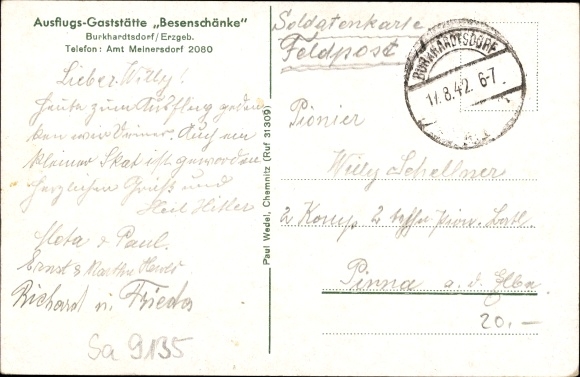 Ausflugs-Gaststätte „Besenschänke"
Burkhardtsdorf/Erzgeb.
Telefon: Amt Meinersdorf 2080
Lieber Willy!
Heute zum Ausflug geden-
ken wir Deiner. Auch ein
kleiner Skat ist geworden
Herzlichen Gruß und
Heil Hitler
Mota u Paul.
Ernst & Martha
Richard u. Frieda
Sa 9135
Paul Wedel, Chemnitz (Ruf 31309)
Soldatenkarte
Feldpost
BURKHARDTSDORF
17.8.42. 6-7
Pionier
Willy Schellner
2 Komp. 2
Pirna a. d. Elbe
20.-